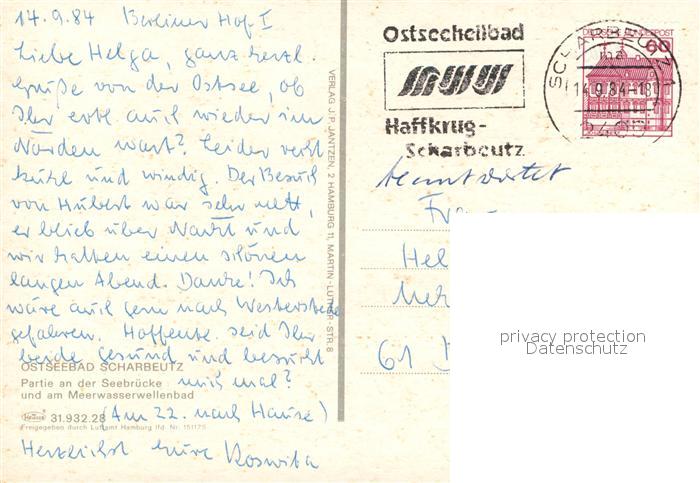 14.9.84 Berliner Hof I
Liebe Helga, ganz herzl.
Grüße von der Ostsee, ob
Ihr erst auch wieder im
Norden wart? Leider recht
kühl und windig. Der Besuch
von Hubert war sehr nett,
er blieb über Nacht und
wir hatten einen schönen
langen Abend. Danke! Ich
wäre auch gern nach Westerstede
gefahren. Hoffentl. seid Ihr
beide gesund und besucht
OSTSEEBAD SCHARBEUTZ
Partie an der Seebrücke mich mal?
und am Meerwasserwellenbad
Krüger 31.932.28 (Am 22. nach Hause)
Freigegeben durch Luftamt Hamburg lfd. Nr. 151175
Herzlichst Eure Roswita
VERLAG J. P. JANTZEN, 2 HAMBURG 11, MARTIN-LUTHER-STR. 8
Ostseeheilbad
Haffkrug-
Scharbeutz
DEUTSCHE BUNDESPOST
60
SCHARBEUTZ 1
14.9.84-18
2409
beantwortet
Frau
Hel
61
privacy protection
Datenschutz